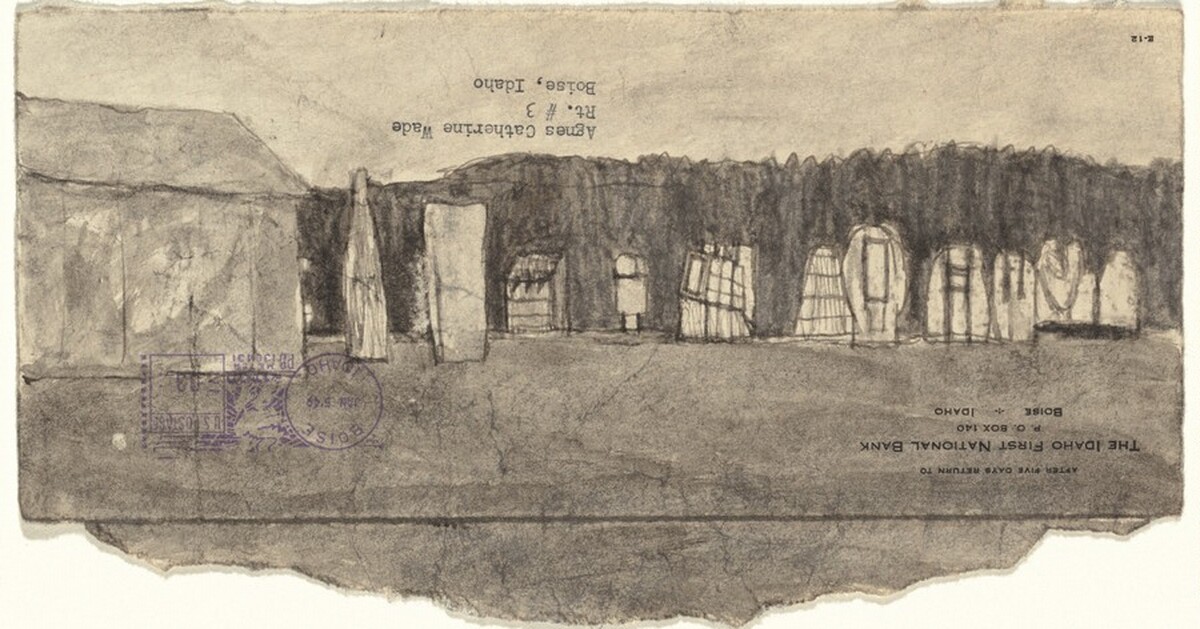 E-12
AFTER FIVE DAYS RETURN TO
THE IDAHO FIRST NATIONAL BANK
P. O. BOX 140
BOISE ÷ IDAHO
BOISE
IDAHO
U.S. POSTAGE
PB METER
Agnes Catherine Wade
Rt. # 3
Boise, Idaho